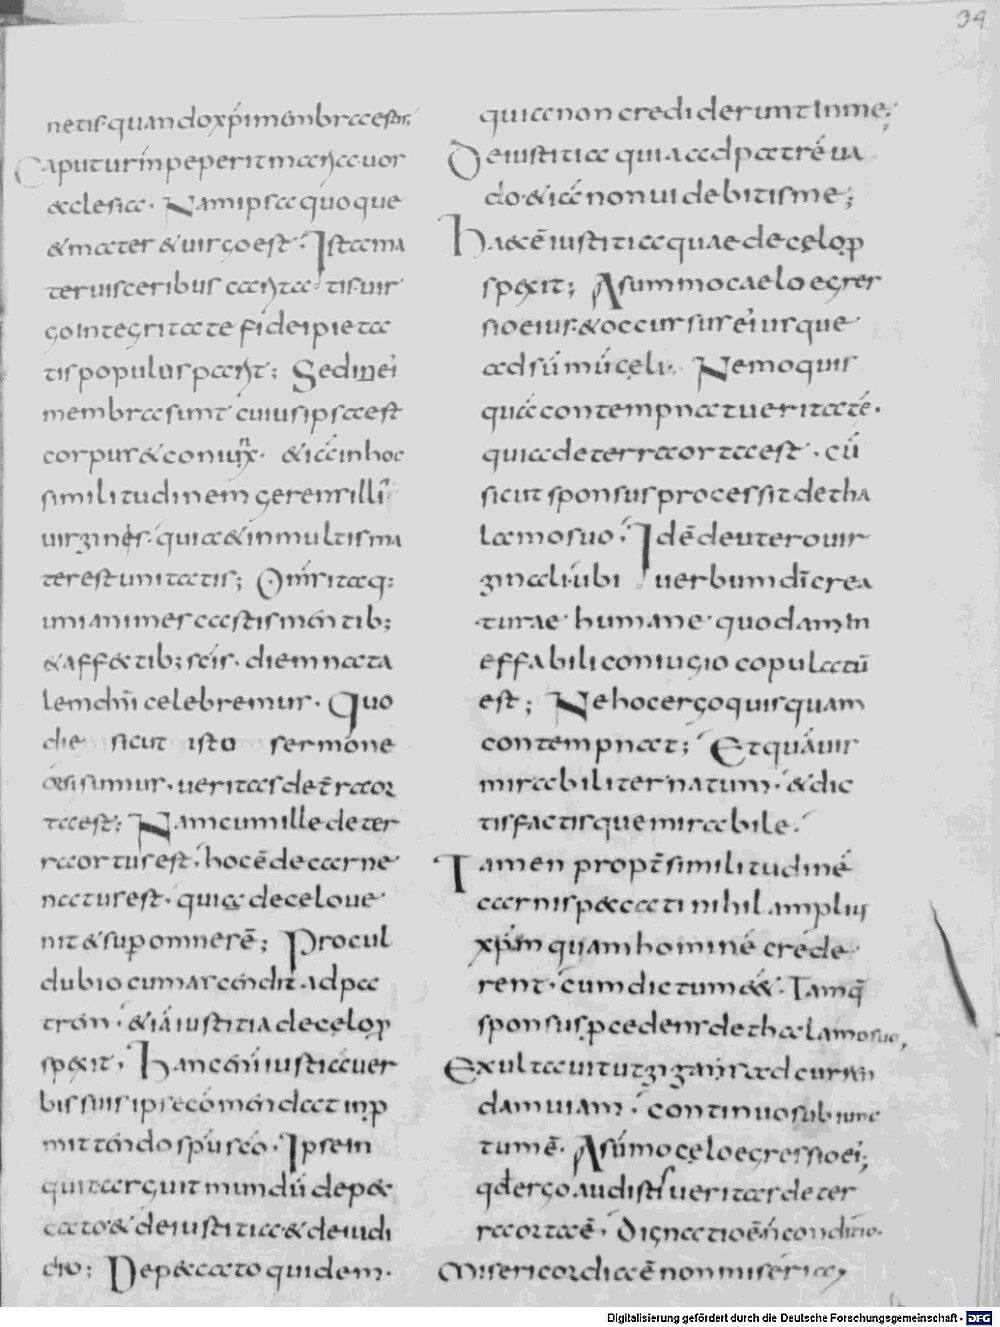 34
netis quando xp̄i membra estis;
Caput urīn peperit maria uor
ecclesiæ. Nam ipsa quoque
& mater & uirgo est. Ista ma
ter uisceribus caritatis uir
go integritate fidei pieta
tis populus parit; Sed illi
membra sunt cuius ipsa est
corpus & coniux. & ia in hoc
similitudinem gerens illi
uirginis. quia & in multis ma
ter est unitatis; Om̄s itaq:
unianimes castis mentib;
& affectib; scīs. diem nata
lem dn̄i celebremus. Quo
die sicut isto sermone
orsi sumus. ueritas de t̄ra or
ta est; Nam cum ille de ter
ra ortus est. hoc ē de carne
natus est. quia de celo ue
nit & sup omne rē; Procul
dubio cum ascendit ad pa
trem. & iā iustitia de celo p
spexit, Hanc enī iustitiā uer
bis suis ip̄se cōmendat in p
mittendo sp̄u scō. Ipse in
quit arguit mundū de pec
cato & de iustitia & de iudi
cio; De peccato quidem.
quia non crediderunt in me;
De iustitia quia ad patrē ua
do. & iā non uidebitis me;
Haec ē iustitia quae de celo p
spexit; A summo caelo egres
sio eius. & occursus ei usque
ad sūmū celi. Nemo quis
quā contempnat ueritatē.
quia de terra orta est. cū
sicut sponsus processit de tha
lamo suo. Id ē de utero uir
ginali. ubi uerbum dī crea
turae humane quodam in
effabili coniugio copulatū
est; Ne hoc ergo quisquam
contempnat; Et quāuis
mirabiliter natum. & dic
tis factisque mirabile.
Tamen propt̄ similitudinē
carnis peccati nihil amplius
xp̄m quam hominē crede
rent. cum dictum ēēt. Tamq̄
sponsus pcedens de thalamo suo,
Exultauit ut gigans ad curren
dam uiam. continuo subiunc
tum ē. A sūmo celo egressio ei;
qd ergo audisti ueritas de ter
ra orta ē. dignatio ē n̄ conditio.
misericordia ē non miseria,
Digitalisierung gefördert durch die Deutsche Forschungsgemeinschaft - DFG